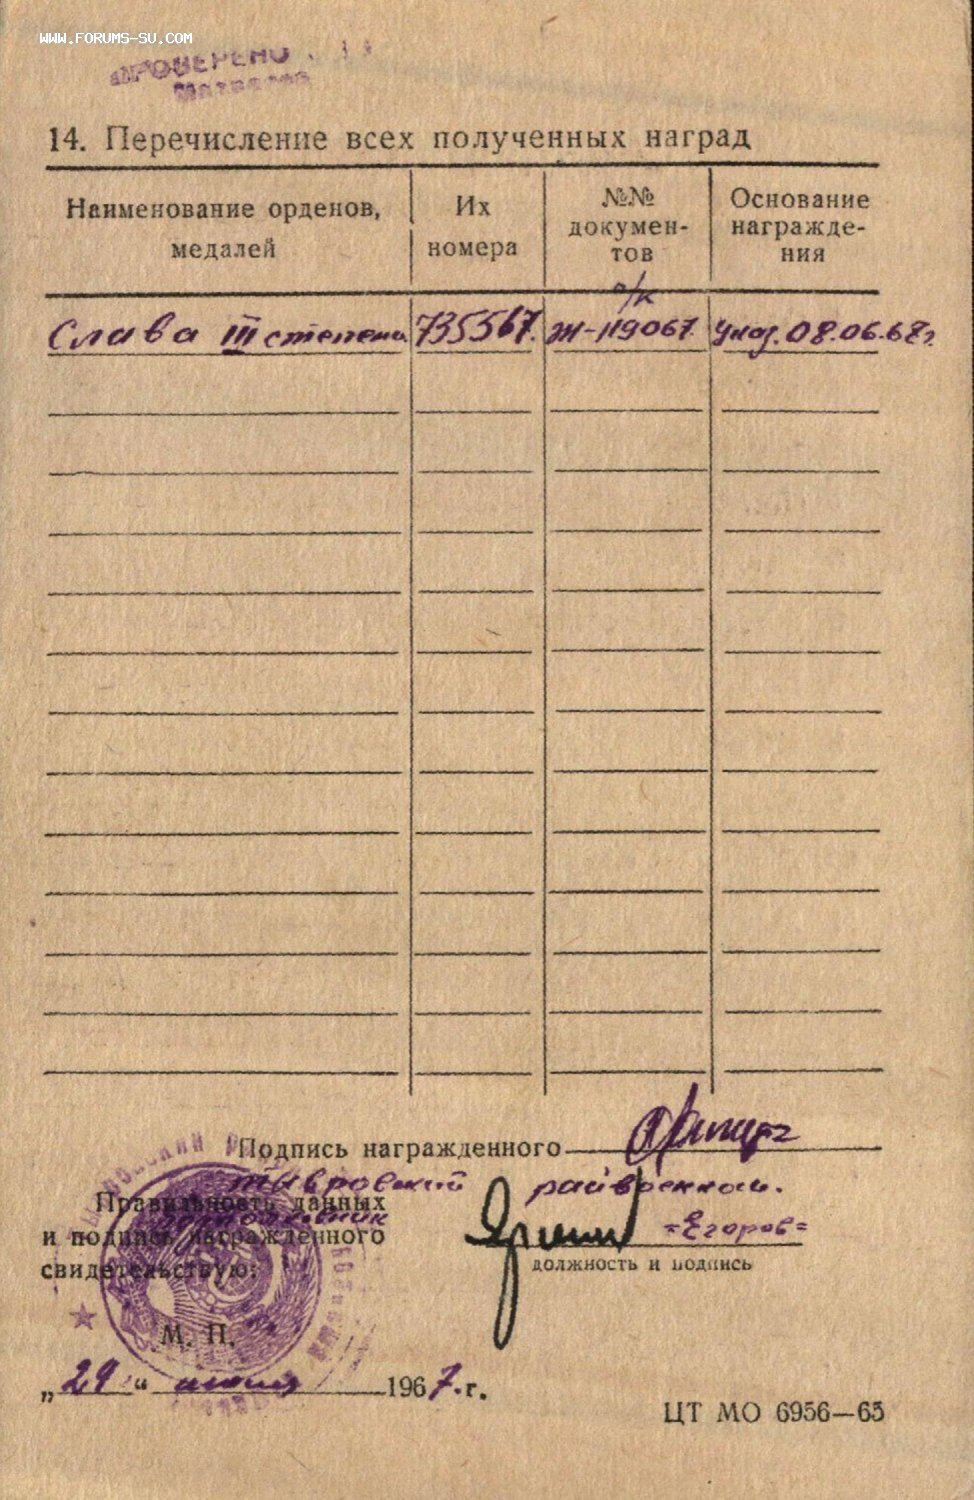 WWW.FORUMS-SU.COM
ПРОВЕРЕНО
14. Перечисление всех полученных наград
Наименование орденов, медалей
Их номера
№№ документов
Основание награждения
о/к
Слава III степени 735567. Ж-119067. Указ. 08.06.68г.
Подпись награжденного
райвоенком.
Правильность данных
подполковник
и подпись награжденного
=Егоров=
свидетельствую:
должность и подпись
М. П.
„29“ июня 1967. г.
ЦТ МО 6956—65